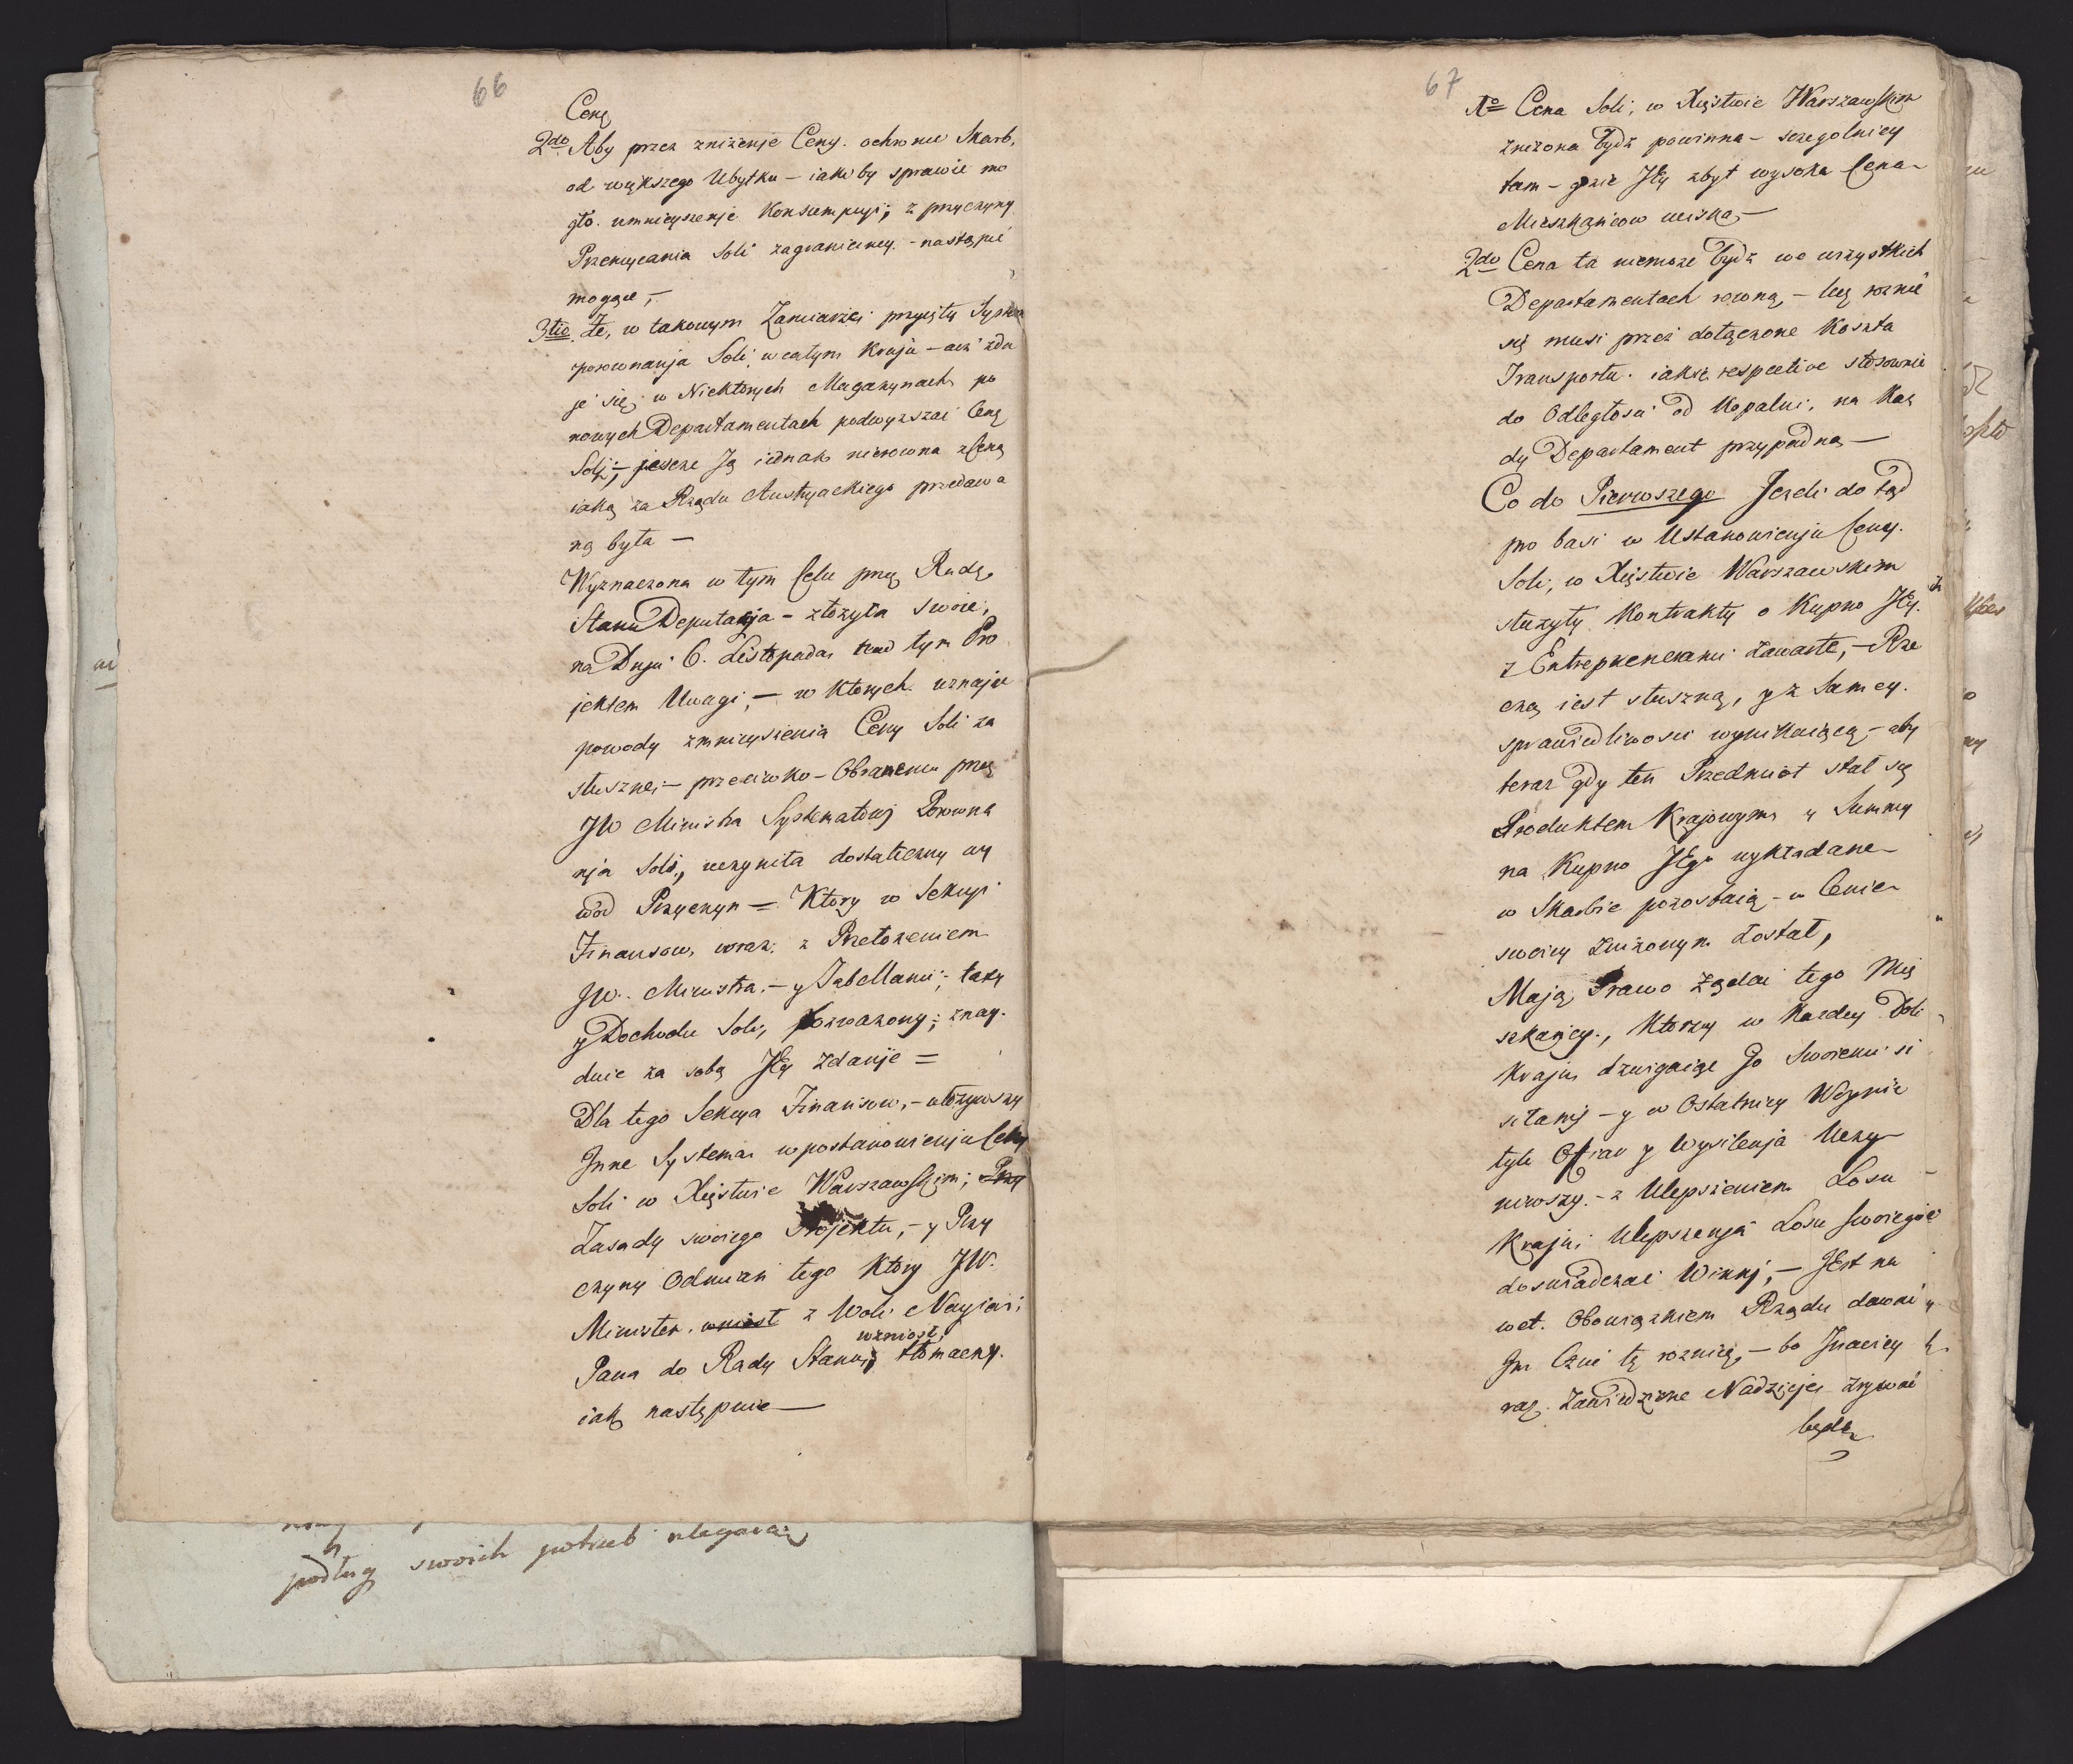 66
Cenę
2do Aby przez zniżenie Ceny. ochronić Skarb,
od większego Ubytku – iakiby sprawić mo
gło. umnieyszenie Konsumpcyi; z przyczyny
Przemycania Soli zagraniczney. – nastąpić
mogące,–
3tio. Że, w takowym Zamiarze przyięty System
porownania Soli w całym kraju – acz zda
je się w Niektorych Magazynach po
nowych Departamentach podwyzszać Cenę
Soli; – jescze Ją iednak nierowna z Ceną
iaką za Rządu Austryackiego przedawa
ną była –
Wyznaczona w tym Celu przy Radzie
Stanu Deputacja – złożyła swoie,
na Dniu 6. Listopada nad tym Pro
jektem Uwagi, – w ktorych uznając
powody zmnieyszenia Ceny Soli za
słuszne, – przeciwko – Obranemu przez
JW Ministra Systematowi Porowna
nja Soli, uczyniła dostateczny wy
wód Przyczyn = Ktory w Sekcyi
Finansow, wraz z Przełożeniem
JW. Ministra. – y Tabellami; taxy
y Dochodu Soli, rozważony; znay
duie za sobą Jey Zdanje =
Dla tego Sekcya Finansow, – ułożywszy
Inne Systema w postanowieniu Ceny
Soli w Xięstwie Warszawskim; Przy
Zasady swoiego Projektu, – y Przy
czyny Odmian tego Ktory JW.
Minister. wniosł z Woli Nayias:
wzniosł,
Pana do Rady Stanu, tłomaczy.
iak następuie –
podług swoich potrzeb
67
1o Cena Soli, w Xięstwie Warszawskim
zniżona bydź powinna – sczegolniey
tam – gdzie Jey zbyt wysoka Cena
Mieszkańcow uciska, –
2do Cena ta niemoże bydź we wszystkich
Departamentach rowną, – lecz roznić
się musi przez dołączone Koszta
Transportu. iakie respective stosownie
do Odległości od Kopalni, na Każ
dy Departament przypadną –
Co do Pierwszego Jeżeli do tąd
pro basi w Ustanowieniu Ceny.
Soli, w Xięstwie Warszawskim
służyły Kontrakty o Kupno Jey.
z Entreprenerami zawarte, – Rze
czą iest słuszną, y z samey.
sprawiedliwości wynikaiącą – aby
teraz gdy ten Przedmiot stał się
Produktem Krajowym y Summy
na Kupno Jego wykładane
w Skarbie pozostaią – w Cenie
swoiey zniżonym został,
Mają Prawo żądać tego Mię
szkańcy., Ktorzy w Każdey Doli
Kraju, dzwigaiąc Go swoiemi si
siłami – y w Ostatniey Woynie
tyle Ofiar y Wysilenja Uczy
niwszy. – z Ulepszeniem Losu
Kraju; Ulepszenja Losu swoiego
doswiadczać Winni; – Jest na
wet. Obowiązkiem Rządu dawać
Im Czuć tę roznicę, – bo Inaczey
raz. Zawiedzione Nadzieje zrywać
będą